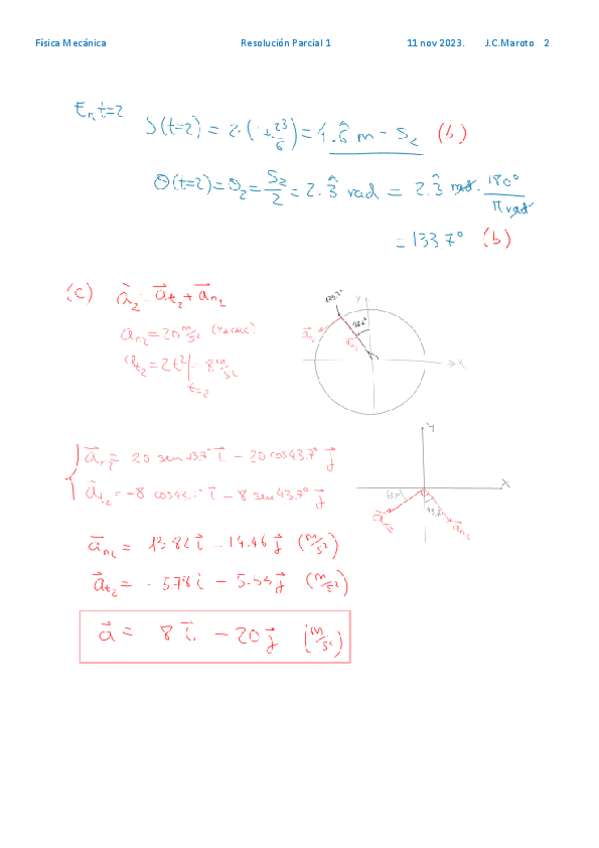 Física Mecánica Resolución Parcial 1 11 nov 2023. J.C.Maroto 2
En t=2
S(t=2) = 2·(1+2³/6) = 4.6̂ m - S₂ (b)
Θ(t=2) = Θ₂ = S₂/2 = 2.3̂ rad = 2.3̂ rad · 180°/π rad
= 133.7° (b)
(c) a⃗₂ = a⃗t₂ + a⃗n₂
an₂ = 20 m/s²
at₂ = 2t²|t=2 = 8 m/s²
133.7° Y
a⃗t₂ a⃗n₂
X
a⃗n₂ = 20 sen 43.7° i⃗ - 20 cos 43.7° j⃗
a⃗t₂ = -8 cos 43.7° i⃗ - 8 sen 43.7° j⃗
Y
X
43.7
a⃗t₂ a⃗n₂
a⃗n₂ = 13.82 i⃗ - 14.46 j⃗ (m/s²)
a⃗t₂ = -5.78 i⃗ - 5.54 j⃗ (m/s²)
a⃗ = 8 i⃗ - 20 j⃗ (m/s²)